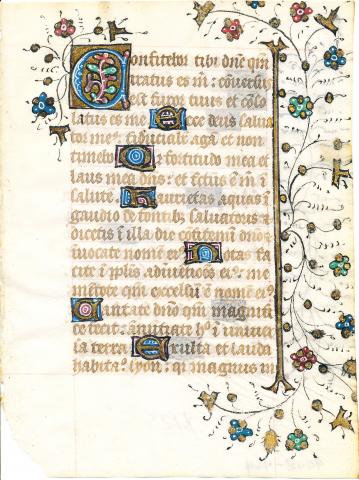 Confitebor tibi dne qm
iratus es m: cõversus
est furor tuus et cõso
latus es me Ecce deus salva
tor me⁹ fiducialit agã et non
timebo Q fortitudo mea et
laus mea dns: et fctus ẽ m i
salutẽ Haurietis aquas i
gaudio de fontib⁹ salvatoris
dicetis i illa die cõfitemi dno
ivocate nomen ei⁹ Notas fa
cite i pplis adivẽtiões ei⁹: me
mẽtote qm excelsũ ẽ nomẽ ei⁹
Cantate dno qm magnifi
ce fecit: anũtiate h⁹ i univer
sa terra Exulta et lauda
habita⁹ syon: qr magnus in